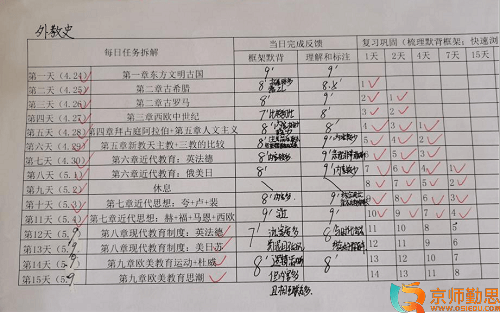 外教史
每日任务拆解 当日完成反馈 复习巩固（梳理默背框架；快速浏
框架默背 理解和标注 1天 2天 4天 7天 15天
第一天（4.24） 第一章东方文明古国 9' 9'
第二天（4.25） 第二章古希腊 8' 8.5' 1
第三天（4.26） 第二章古罗马 8' 9' 2 1
第四天（4.27） 第三章西欧中世纪 7' 8' 3 2
第五天（4.28） 第四章拜占庭阿拉伯+第五章人文主义 8' 8' 4 3 1
第六天（4.29） 第五章新教天主教+三教的比较 8' 9' 5 4 2
第七天（4.30） 第六章近代教育：英法德 8' 9' 6 5 3
第八天（5.1） 第六章近代教育：俄美日 8' 9' 7 6 4 1
第九天（5.2） 休息 8 7 5 2
第十天（5.3） 第七章近代思想：夸+卢+裴 8' 9' 9 8 6 3
第11天（5.4） 第七章近代思想：赫+福+马恩+西欧 9' 9' 10 9 7 4
第12天（5. 第八章现代教育制度：英法德 7' 8' 11 10 8 5
第13天（5. 第八章现代教育制度：美日苏 12 11 9
第14天（5. 第九章欧美教育运动+杜威 8' 8' 13 12 10
第15天（5.9 第九章欧美教育思潮 14 13 11 8
京师勤思
WWW.QSIEDU.COM